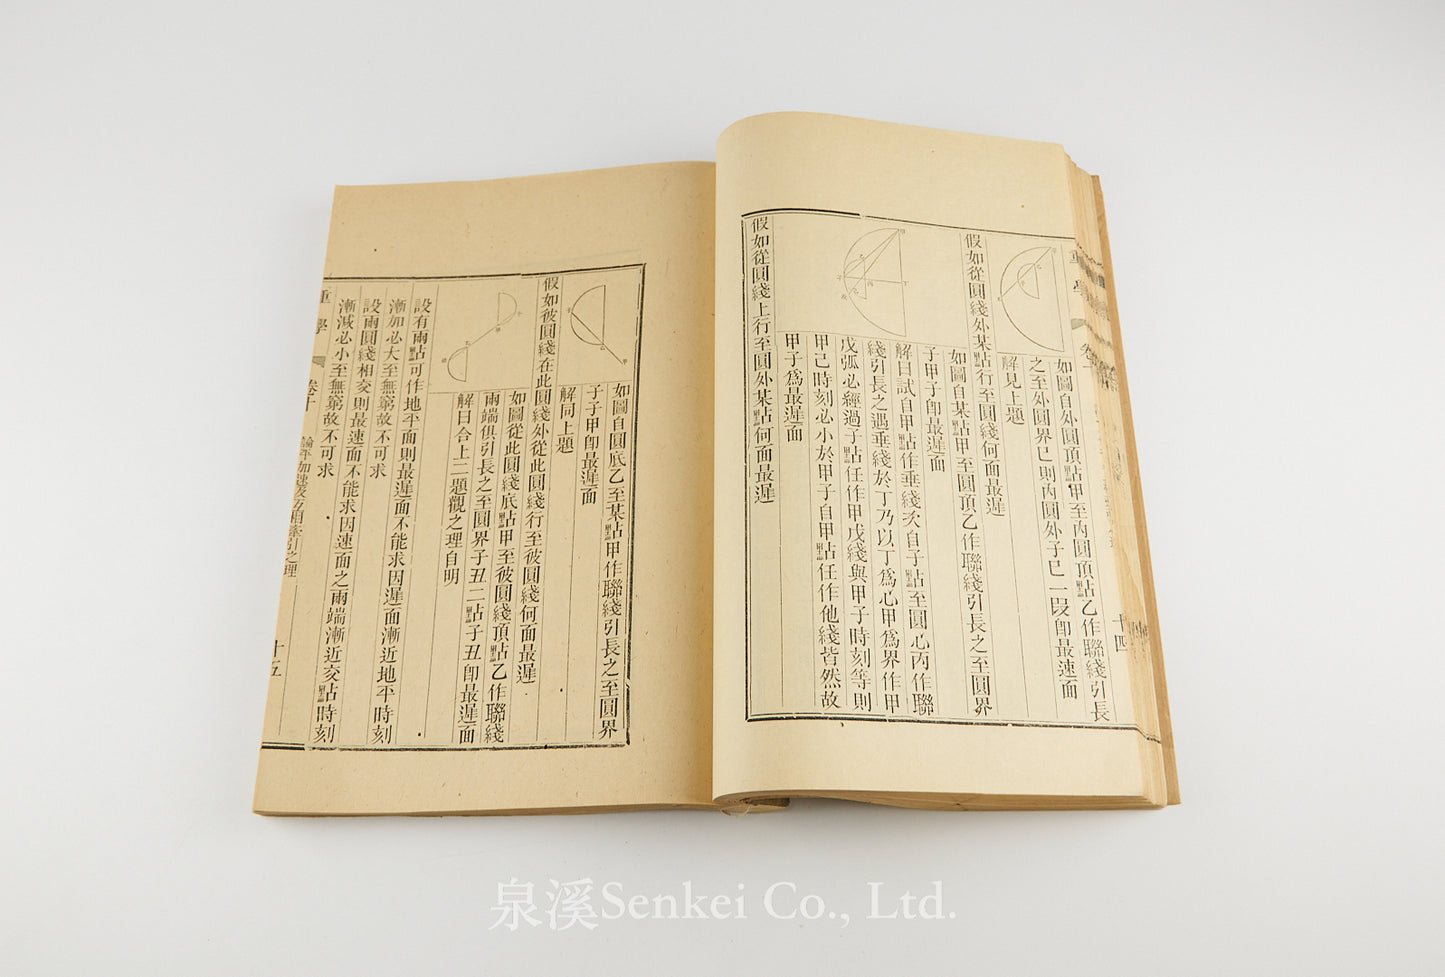 十四
如圖自外圓頂點甲至內圓頂點乙作聯綫引長
之至外圓界己則內圓外子己一段卽最速面
解見上題
假如從圓綫外某點行至圓綫何面最遲
如圖自某點甲至圓頂乙作聯綫引長之至圓界
子甲子卽最遲面
解曰試自甲點作垂綫次自子點至圓心丙作聯
綫引長之遇垂綫於丁乃以丁爲心甲爲界作甲
戊弧必經過子點任作甲戊綫與甲子時刻等則
甲己時刻必小於甲子自甲點任作他綫皆然故
甲子爲最遲面
假如從圓綫上行至圓外某點何面最遲
如圖自圓底乙至某點甲作聯綫引長之至圓界
子子甲卽最遲面
解同上題
假如彼圓綫在此圓綫外從此圓綫行至彼圓綫何面最遲
如圖從此圓綫底點甲至彼圓綫頂點乙作聯綫
兩端俱引長之至圓界子丑二點子丑卽最遲面
解曰合上二題觀之理自明
設有兩點可作地平面則最遲面不能求因遲面漸近地平時刻
漸加必大至無窮故不可求
設兩圓綫相交則最速面不能求因速面之兩端漸近交點時刻
漸減必小至無窮故不可求
重學 卷十 論平加速及互相牽引之理 十五
泉溪Senkei Co., Ltd.